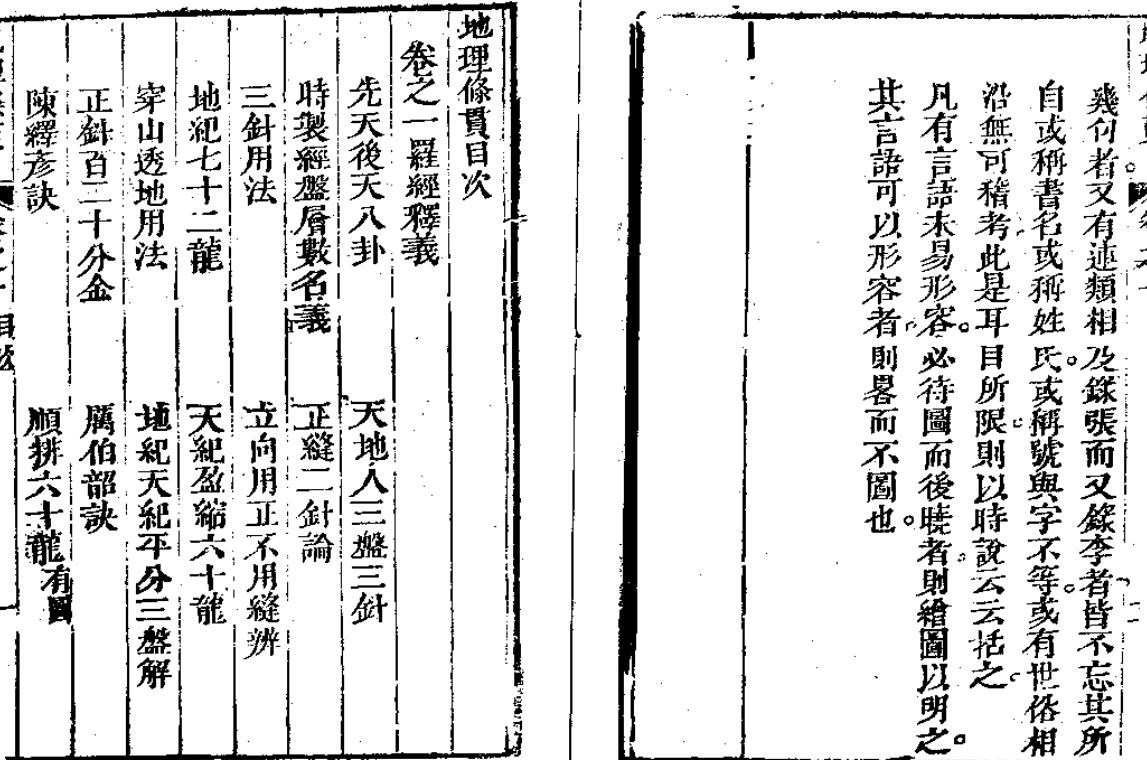 幾何者又有連類相及錄張而又錄李者皆不忘其所
自或稱書名或稱姓氏或稱號與字不等或有世俗相
沿無可稽考此是耳目所限則以時說云云括之
凡有言語未易形容必待圖而後曉者則繪圖以明之
其言語可以形容者則畧而不圖也
地理條貫目次
卷之一羅經釋義
先天後天八卦 天地人三盤三針
時製經盤層數名義 正縫二針論
三針用法 立向用正不用縫辨
地紀七十二龍 天紀盈縮六十龍
穿山透地用法 地紀天紀平分三盤解
正針百二十分金 厲伯韶訣
陳繹彥訣 順排六十龍有圖